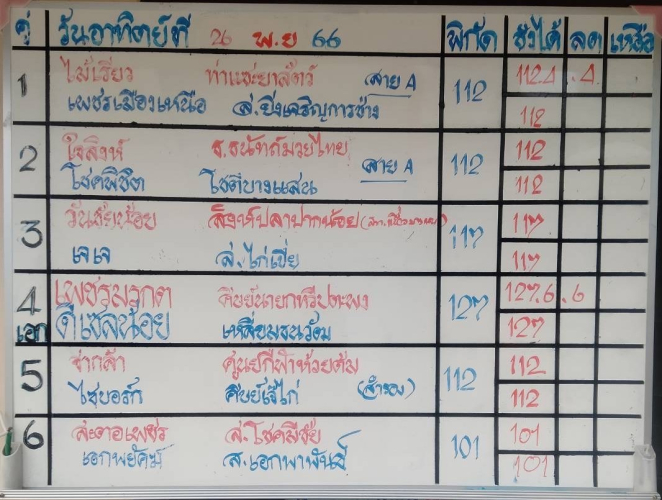 คู่ วันอาทิตย์ที่ 26 พ.ย 66 พิกัด ชั่งได้ ลด เหลือ
1 ไม้เขียว ท่าแซะยาสัตว์ สาย A 112 112.4 .4
เพชรเมืองเหนือ ส.ยิ่งเจริญการช่าง 112
2 ใจสิงห์ ธ.ธนัทถ์มวยไทย สาย A 112 112
โชคพิชิต โชติบางแสน 112
3 วันชัยน้อย สิงห์ปลาปากน้อย 117 117
เจเจ ส.ไก่เปี่ย 117
4 เพชรมรกต ศิษย์นายกทวีปตะพง 127 127.6 .6
เอก ดีเซลน้อย เหลี่ยมธนวัฒ 127
5 จ่ากล้า ศูนย์กีฬาห้วยต้ม 112 112
ไซบอร์ก ศิษย์เจ๊ไก่ (สำรอง) 112
6 สะตอเพชร ส.โชคมีชัย 101 101
เอกพยัคฆ์ ส.เอกพาพันธ์ 101